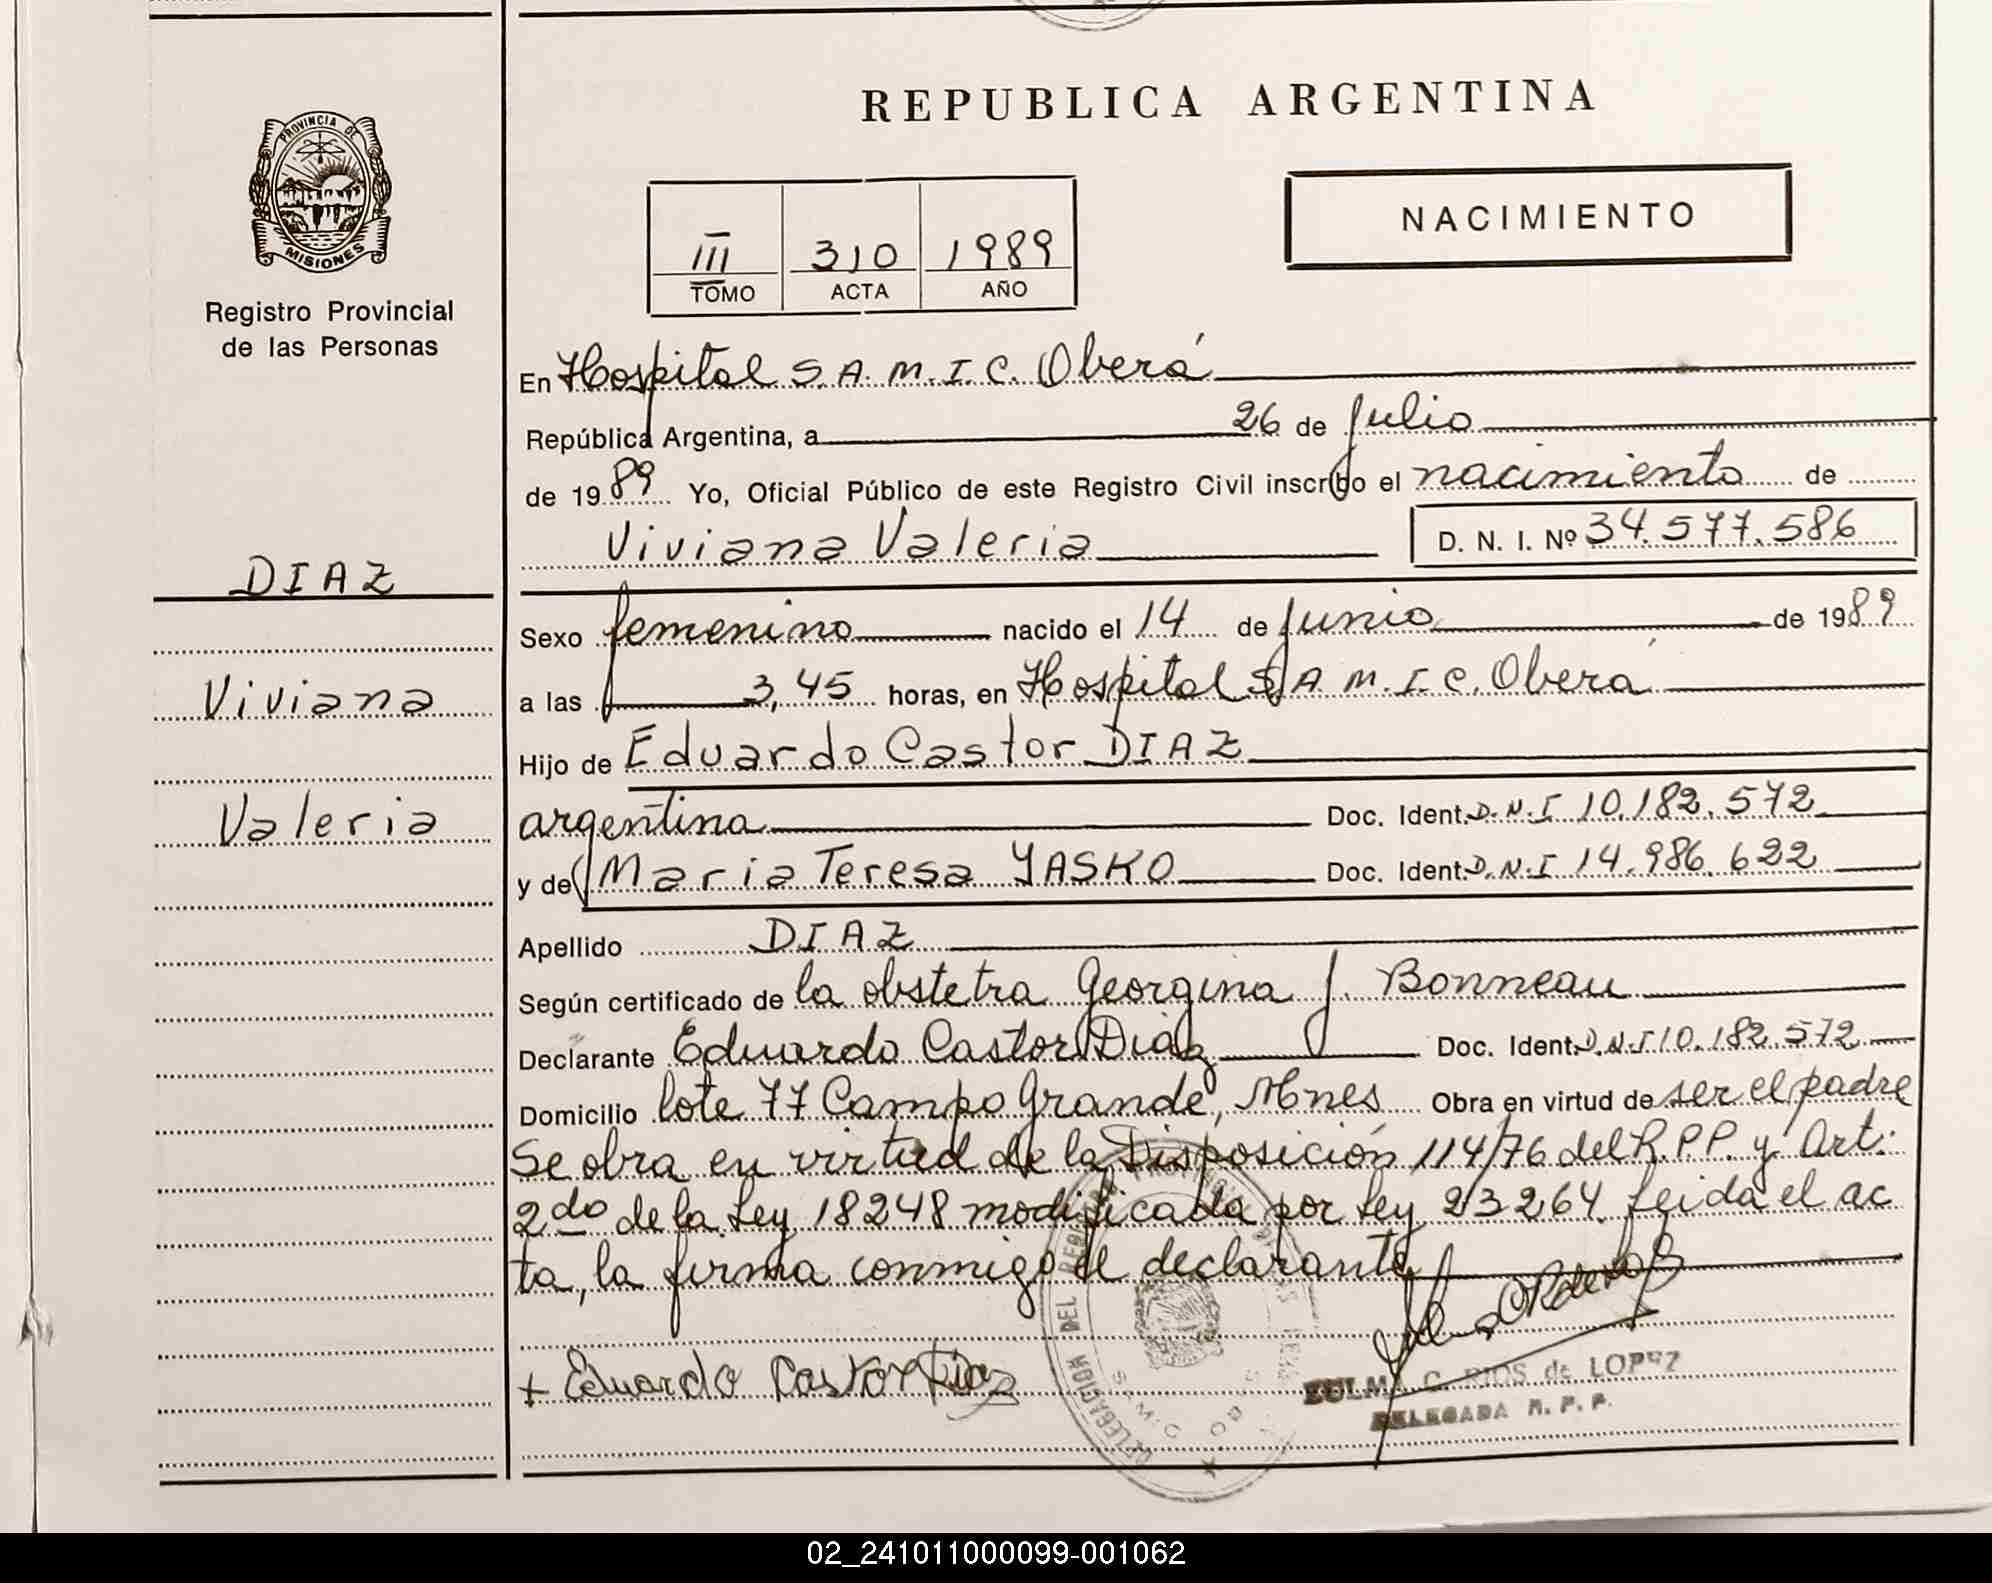 REPUBLICA ARGENTINA
PROVINCIA DE
MISIONES
Registro Provincial
de las Personas
NACIMIENTO
III 310 1989
TOMO ACTA AÑO
En Hospital S.A.M.I.C. Oberá
República Argentina, a 26 de Julio
de 1989 Yo, Oficial Público de este Registro Civil inscribo el nacimiento de
Viviana Valeria D. N. I. Nº 34.577.586
DIAZ
Viviana
Valeria
Sexo femenino nacido el 14 de Junio de 1989
a las 3,45 horas, en Hospital S.A.M.I.C. Oberá
Hijo de Eduardo Castor DIAZ
argentina Doc. Ident. D.N.I 10.182.572
y de Maria Teresa YASKO Doc. Ident. D.N.I 14.986.622
Apellido DIAZ
Según certificado de la obstetra Georgina J. Bonneau
Declarante Eduardo Castor Diaz Doc. Ident. D.N.I 10.182.572
Domicilio lote 77 Campo Grande, Mnes Obra en virtud de ser el padre
Se obra en virtud de la Disposición 114/76 del R.P.P. y Art:
2do de la Ley 18248 modificada por Ley 23264. Leida el ac
ta, la firma conmigo el declarante
+ Eduardo Castor Diaz
C. RIOS de LOPEZ
DELEGADA R. P. P.
DELEGACION DEL
02_241011000099-001062